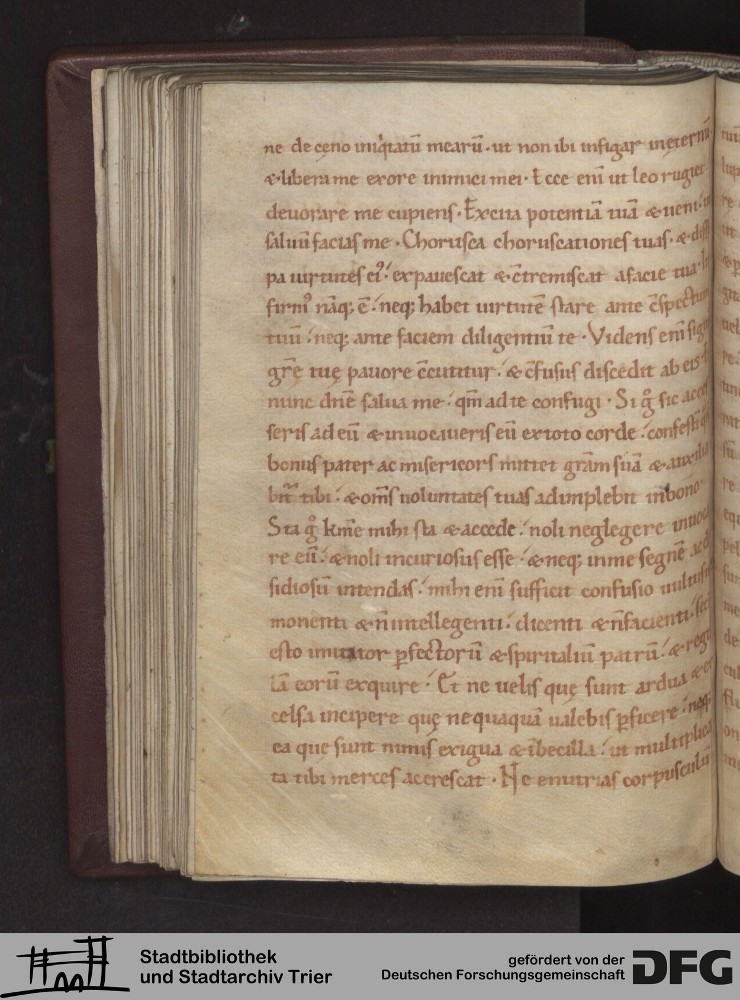 ne de cęno iniq̇tatū mearū · ut non ibi infigar inęternū ·
& libera me exore inimici mei · Ecce enī ut leo rugiet
deuorare me cupiens · Excita potentiā tuā & ueni · ut
saluū facias me · Chorusca choruscationes tuas · & dissi
pa uirtutes ei᷒ · expauescat & c̄tremiscat afacie tua · In
firm᷒ nāq; ē · neq; habet uirtutē stare ante c̄spectum
tuū · neq; ante faciem diligentiū te · Videns enī signū
grē tuę pauore c̄cutitur · & c̄fusus discedit ab eis · &
nunc dn̄e salua me · qm̄ ad te confugi · Si g̊ sic acces
seris ad eū & inuocaueris eū extoto corde · confestī q̇si
bonus pater ac misericors mittet grām suā & auxilia
bit̄ tibi · & om̄s uoluntates tuas adimplebit inbono ·
Sta g̊ km̄e mihi sta & accede · noli neglegere inuoca
re eū · & noli incuriosus esse · & neq; inme segnē ac de
sidiosū intendas · mihi enī sufficit confusio multis
monenti & n̄ intellegenti · dicenti & n̄ facienti · sed
esto imitator ꝑfectorū & spiritaliū patrū · & regu
lā eorū exquire · Et ne uelis quę sunt ardua & ex
celsa incipere quę nequaquā ualebis ꝑficere · neq;
ea quę sunt nimis exigua & ībecilla · ut multiplica
ta tibi merces accrescat · Ne enutrias corpusculū
Stadtbibliothek
und Stadtarchiv Trier
gefördert von der
Deutschen Forschungsgemeinschaft
DFG